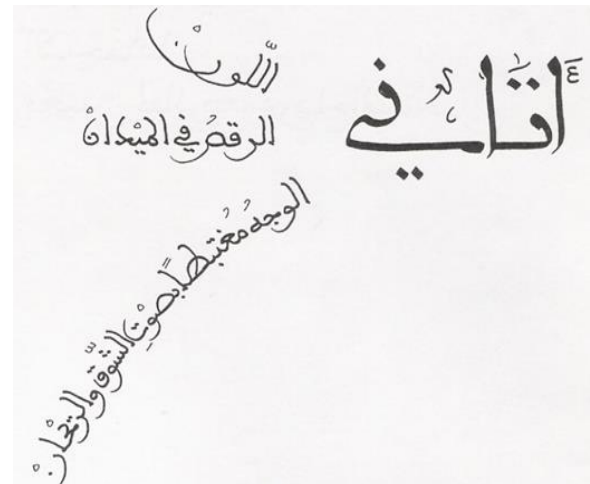 اللَّونْ
الرقصُ في الميْدانْ
الوجهُ مُغتبطاً بصوْتِ الشّوْقِ والرّيْحانْ